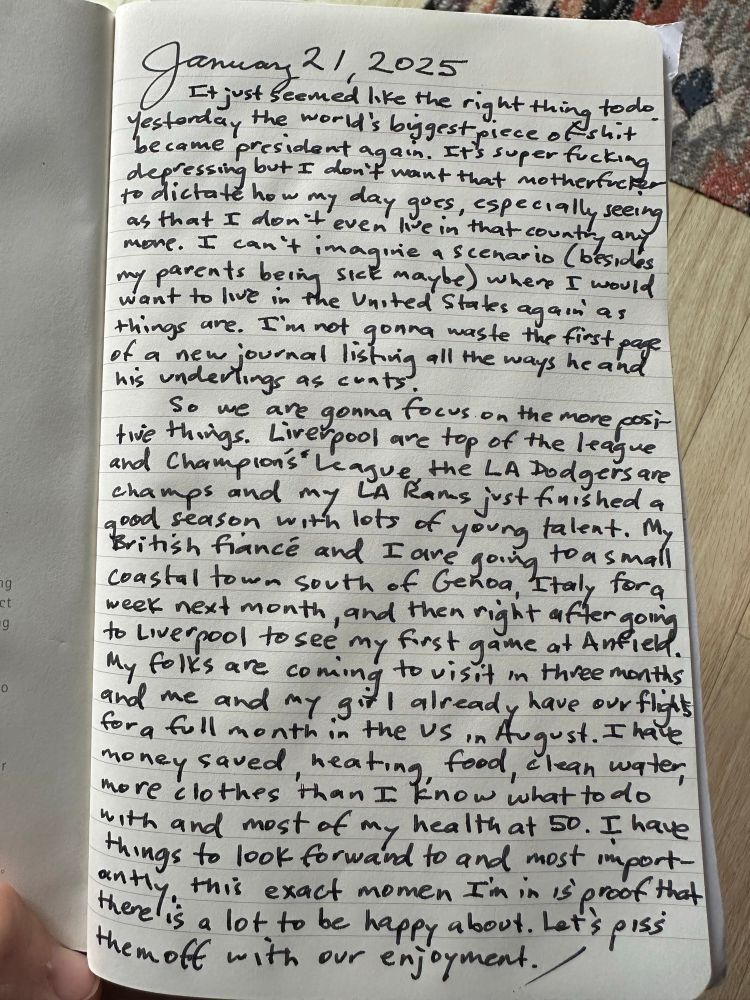 January 21, 2025
It just seemed like the right thing to do.
Yesterday the world's biggest piece of shit
became president again. It's super fucking
depressing but I don't want that motherfucker
to dictate how my day goes, especially seeing
as that I don't even live in that country any
more. I can't imagine a scenario (besides
my parents being sick maybe) where I would
want to live in the United States again as
things are. I'm not gonna waste the first page
of a new journal listing all the ways he and
his underlings as cunts.
So we are gonna focus on the more posi-
tive things. Liverpool are top of the league
and Champion's League, the LA Dodgers are
champs and my LA Rams just finished a
good season with lots of young talent. My
British fiancé and I are going to a small
coastal town south of Genoa, Italy for a
week next month, and then right after going
to Liverpool to see my first game at Anfield.
My folks are coming to visit in three months
and me and my girl already have our flights
for a full month in the US in August. I have
money saved, heating, food, clean water,
more clothes than I know what to do
with and most of my health at 50. I have
things to look forward to and most import-
antly, this exact momen I'm in is proof that
there is a lot to be happy about. Let's piss
them off with our enjoyment.
ng
ct
g
o
r